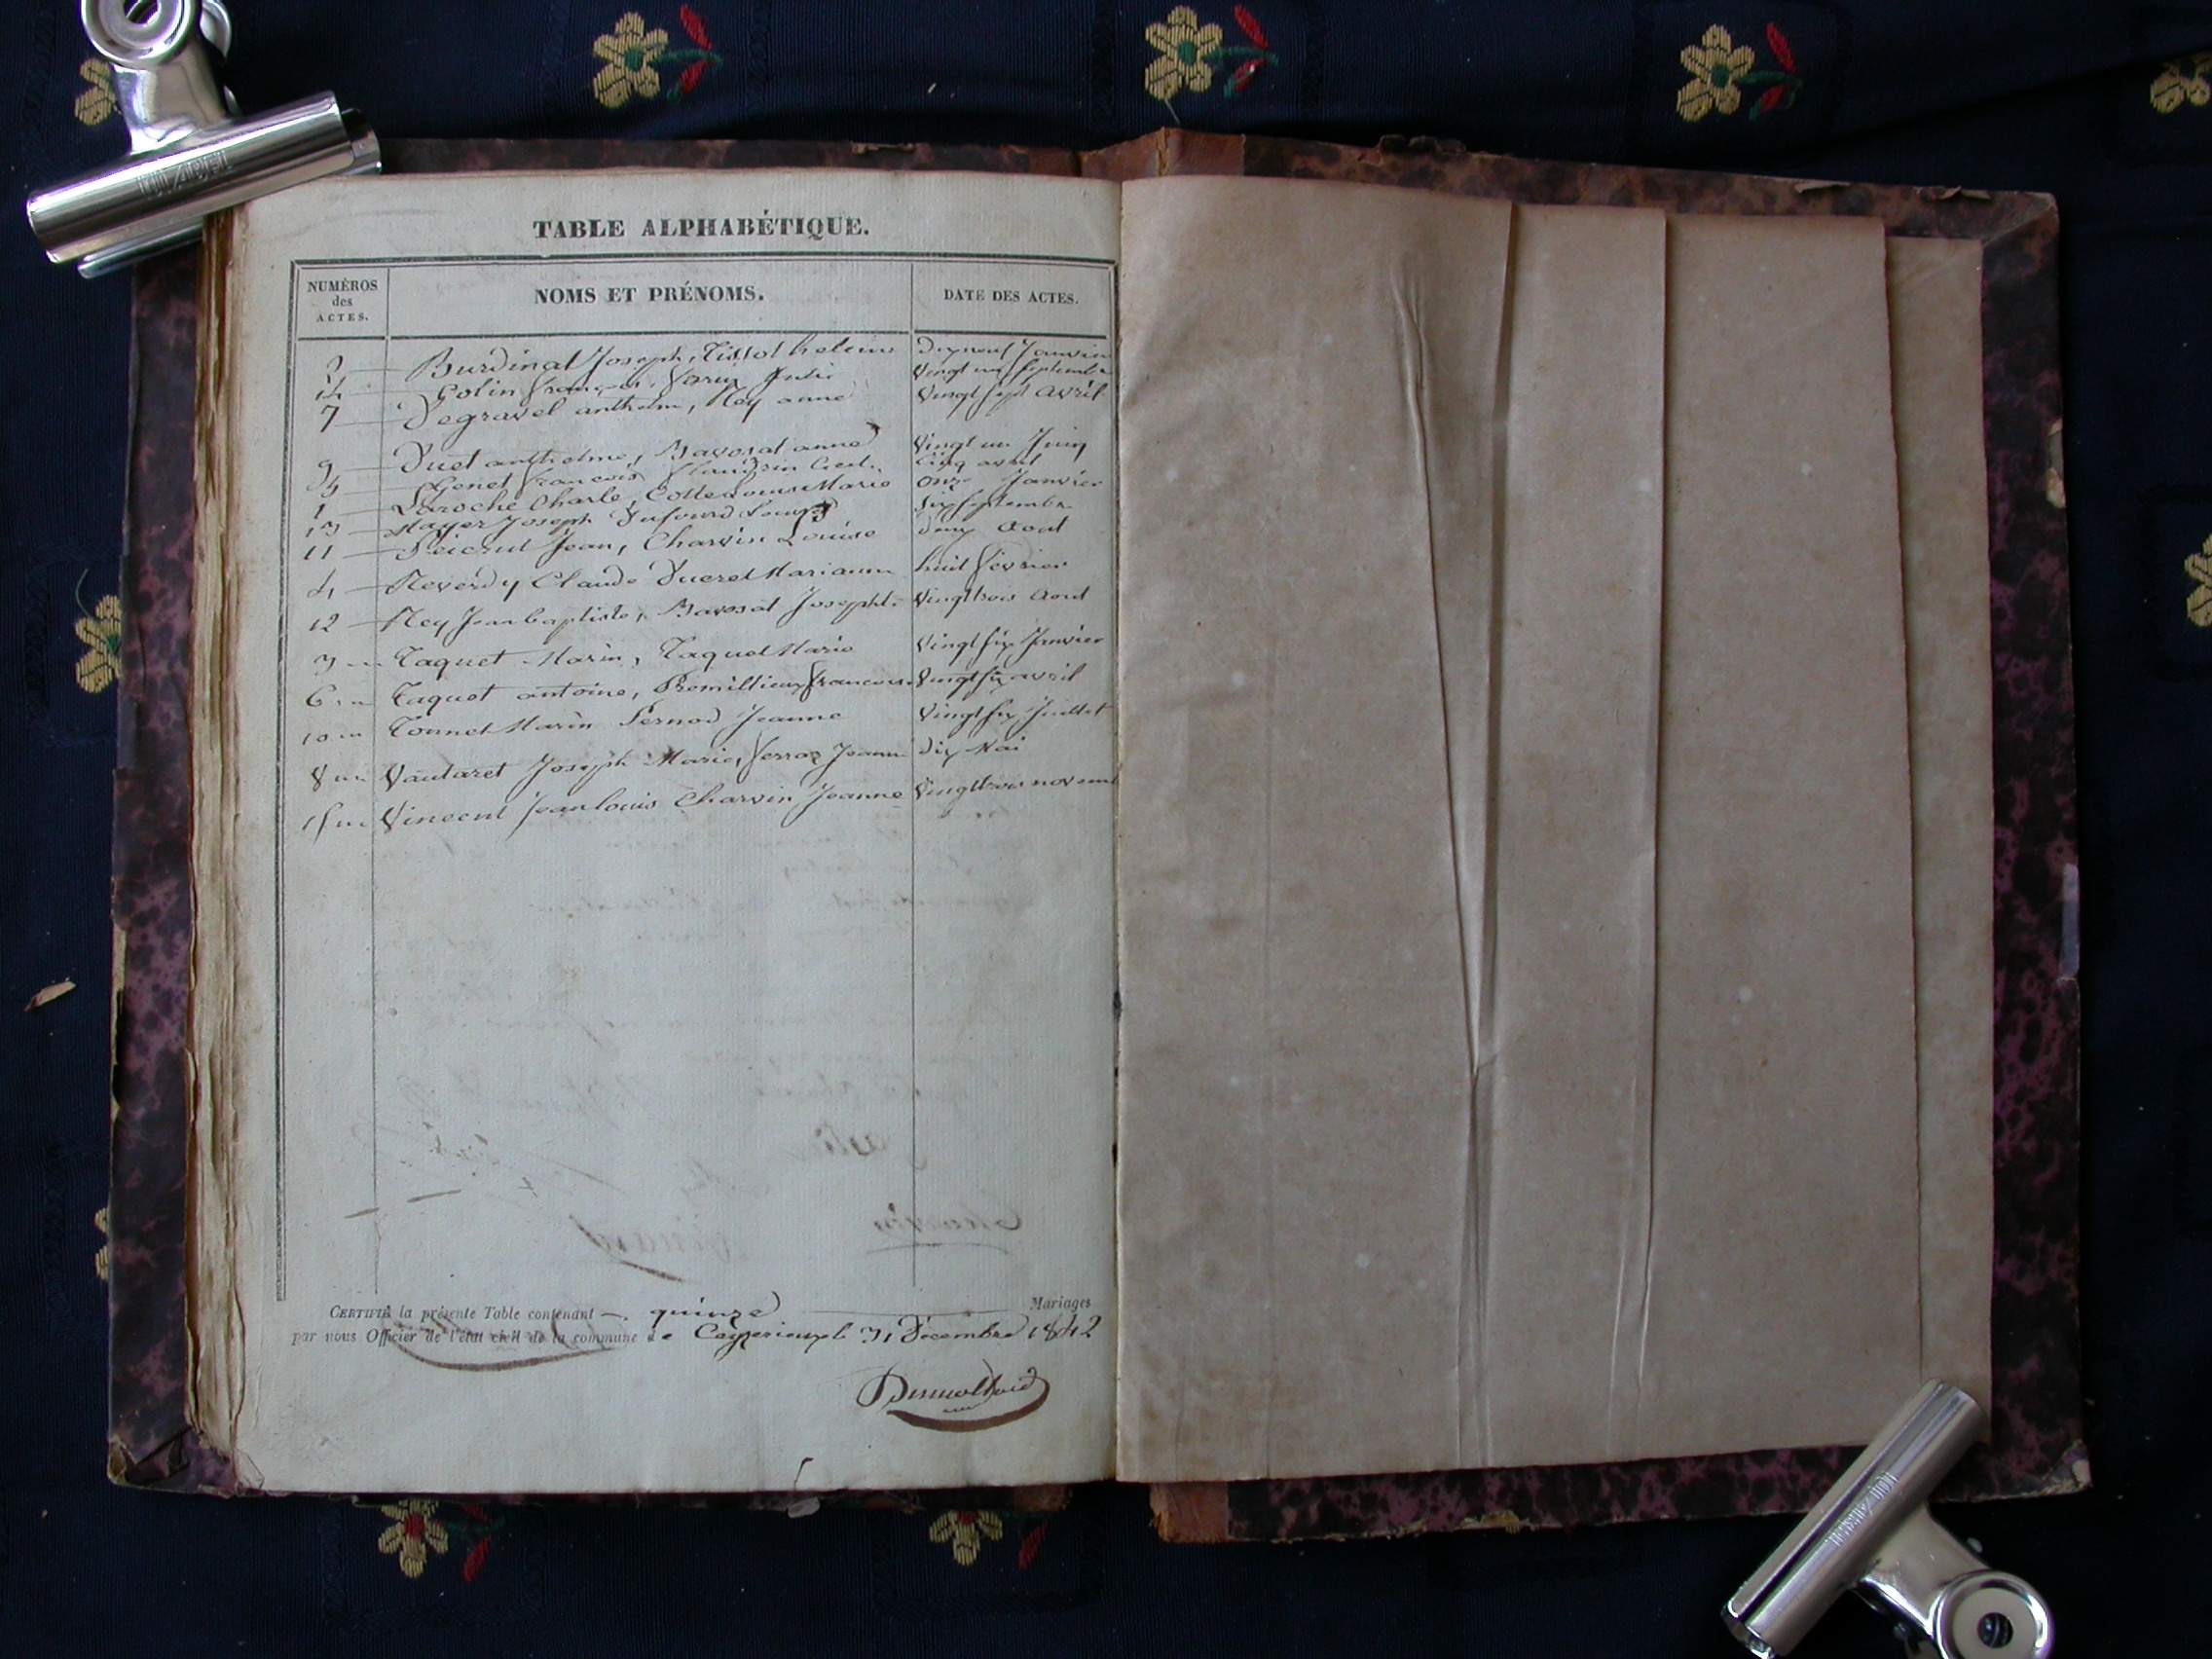 TABLE ALPHABÉTIQUE.
NUMÉROS des ACTES.
NOMS ET PRÉNOMS.
DATE DES ACTES.
2 Burdinat Joseph, Tissot helene dix neuf Janvier
14 Colin françois, Julie Vingt un Septembre
7 Degravel anthelm, Rey anne Vingt sept avril
9 Duet anthelme, Bavosat anne Vingt un Juin
5 Genet francois Cinq avril
1 Laroche Charle, Collet Louise Marie onze Janvier
13 Mayer Joseph Dufourd Louise Six Septembre
11 Jean, Charvin Louise deux Aout
4 Reverdy Claude Ducret Marianne huit fevrier
12 Rey Jean baptiste, Bavosat Josephte Vingt trois Aout
3 Taquet Marin, Taquet Marie Vingt six Janvier
6 Taquet antoine, Premillieux francoise Vingt six avril
10 Tonnet Marin Pernod Jeanne Vingt six Juillet
8 Vautaret Joseph Marie, ferraz Jeanne dix Mai
15 Vincent Jean louis Charvin Jeanne Vingt trois novem
CERTIFIÉ la présente Table contenant quinze Mariages
par nous Officier de l'état civil de la commune de Ceyzerieux le 31 Décembre 1842